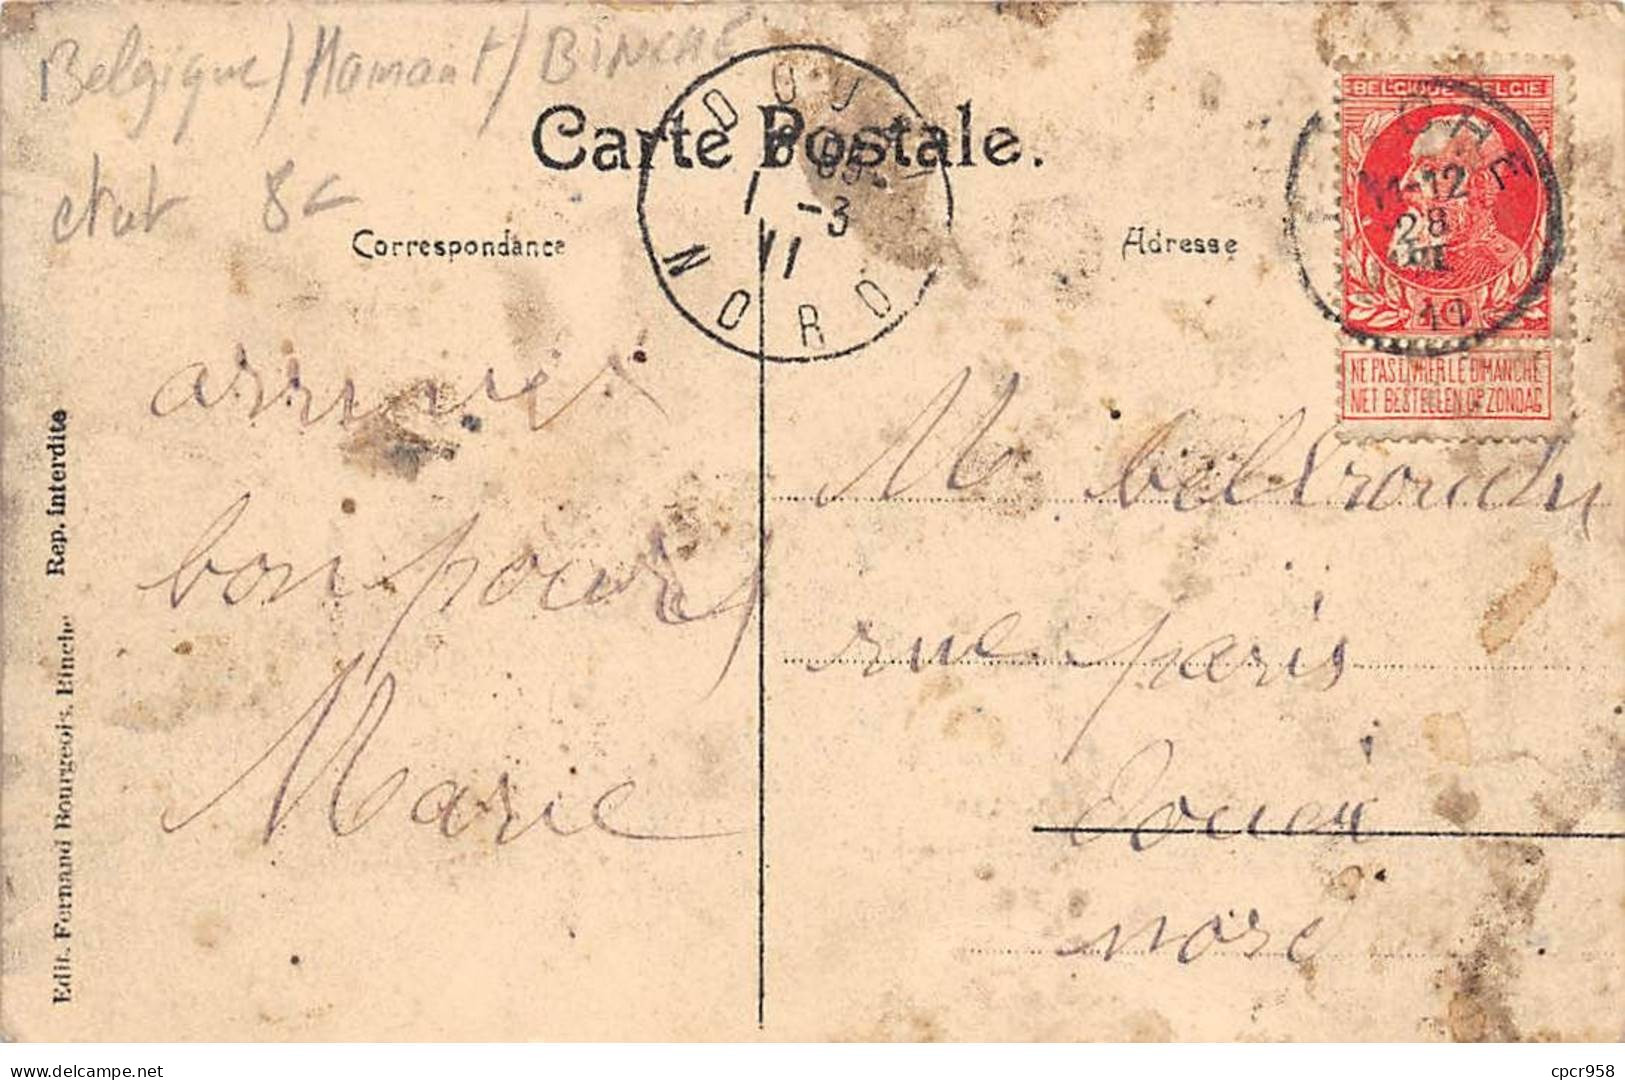 Belgique / Hainaut / BINCHE
etat 8c
Carte Postale.
Correspondance
Adresse
DOUAI
1 -3
11
NORD
BELGIQUE BELGIE
CHE
11-12
28
NE PAS LIVRER LE DIMANCHE
NIET BESTELLEN OP ZONDAG
arrivez
bon pour
Marie
M
rue paris
Douai
nord
Edit. Fernand Bourgeois. Binche Rep. interdite
cpcr958